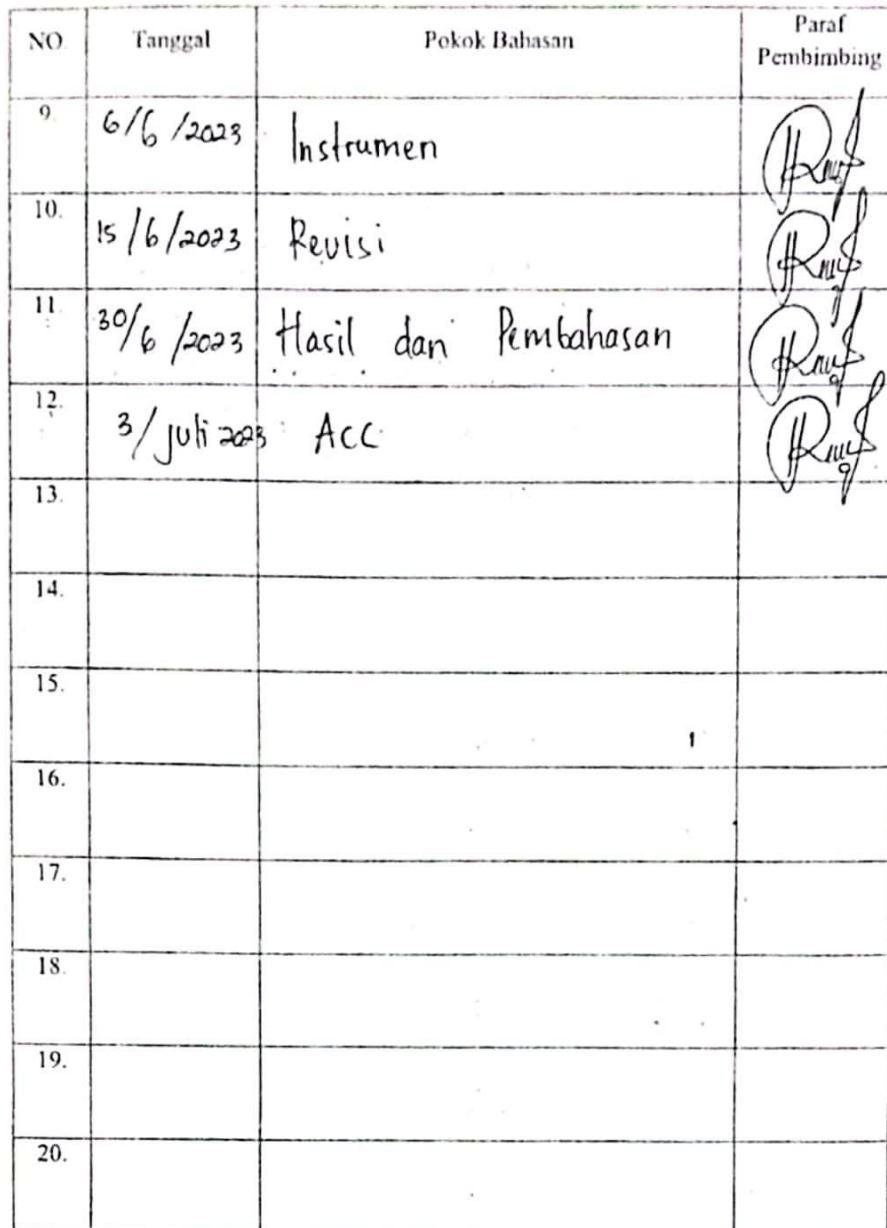 NO. Tanggal Pokok Bahasan Paraf Pembimbing
9. 6/6/2023 Instrumen
10. 15/6/2023 Revisi
11. 30/6/2023 Hasil dan Pembahasan
12. 3/juli 2023 ACC
13.
14.
15.
16.
17.
18.
19.
20.